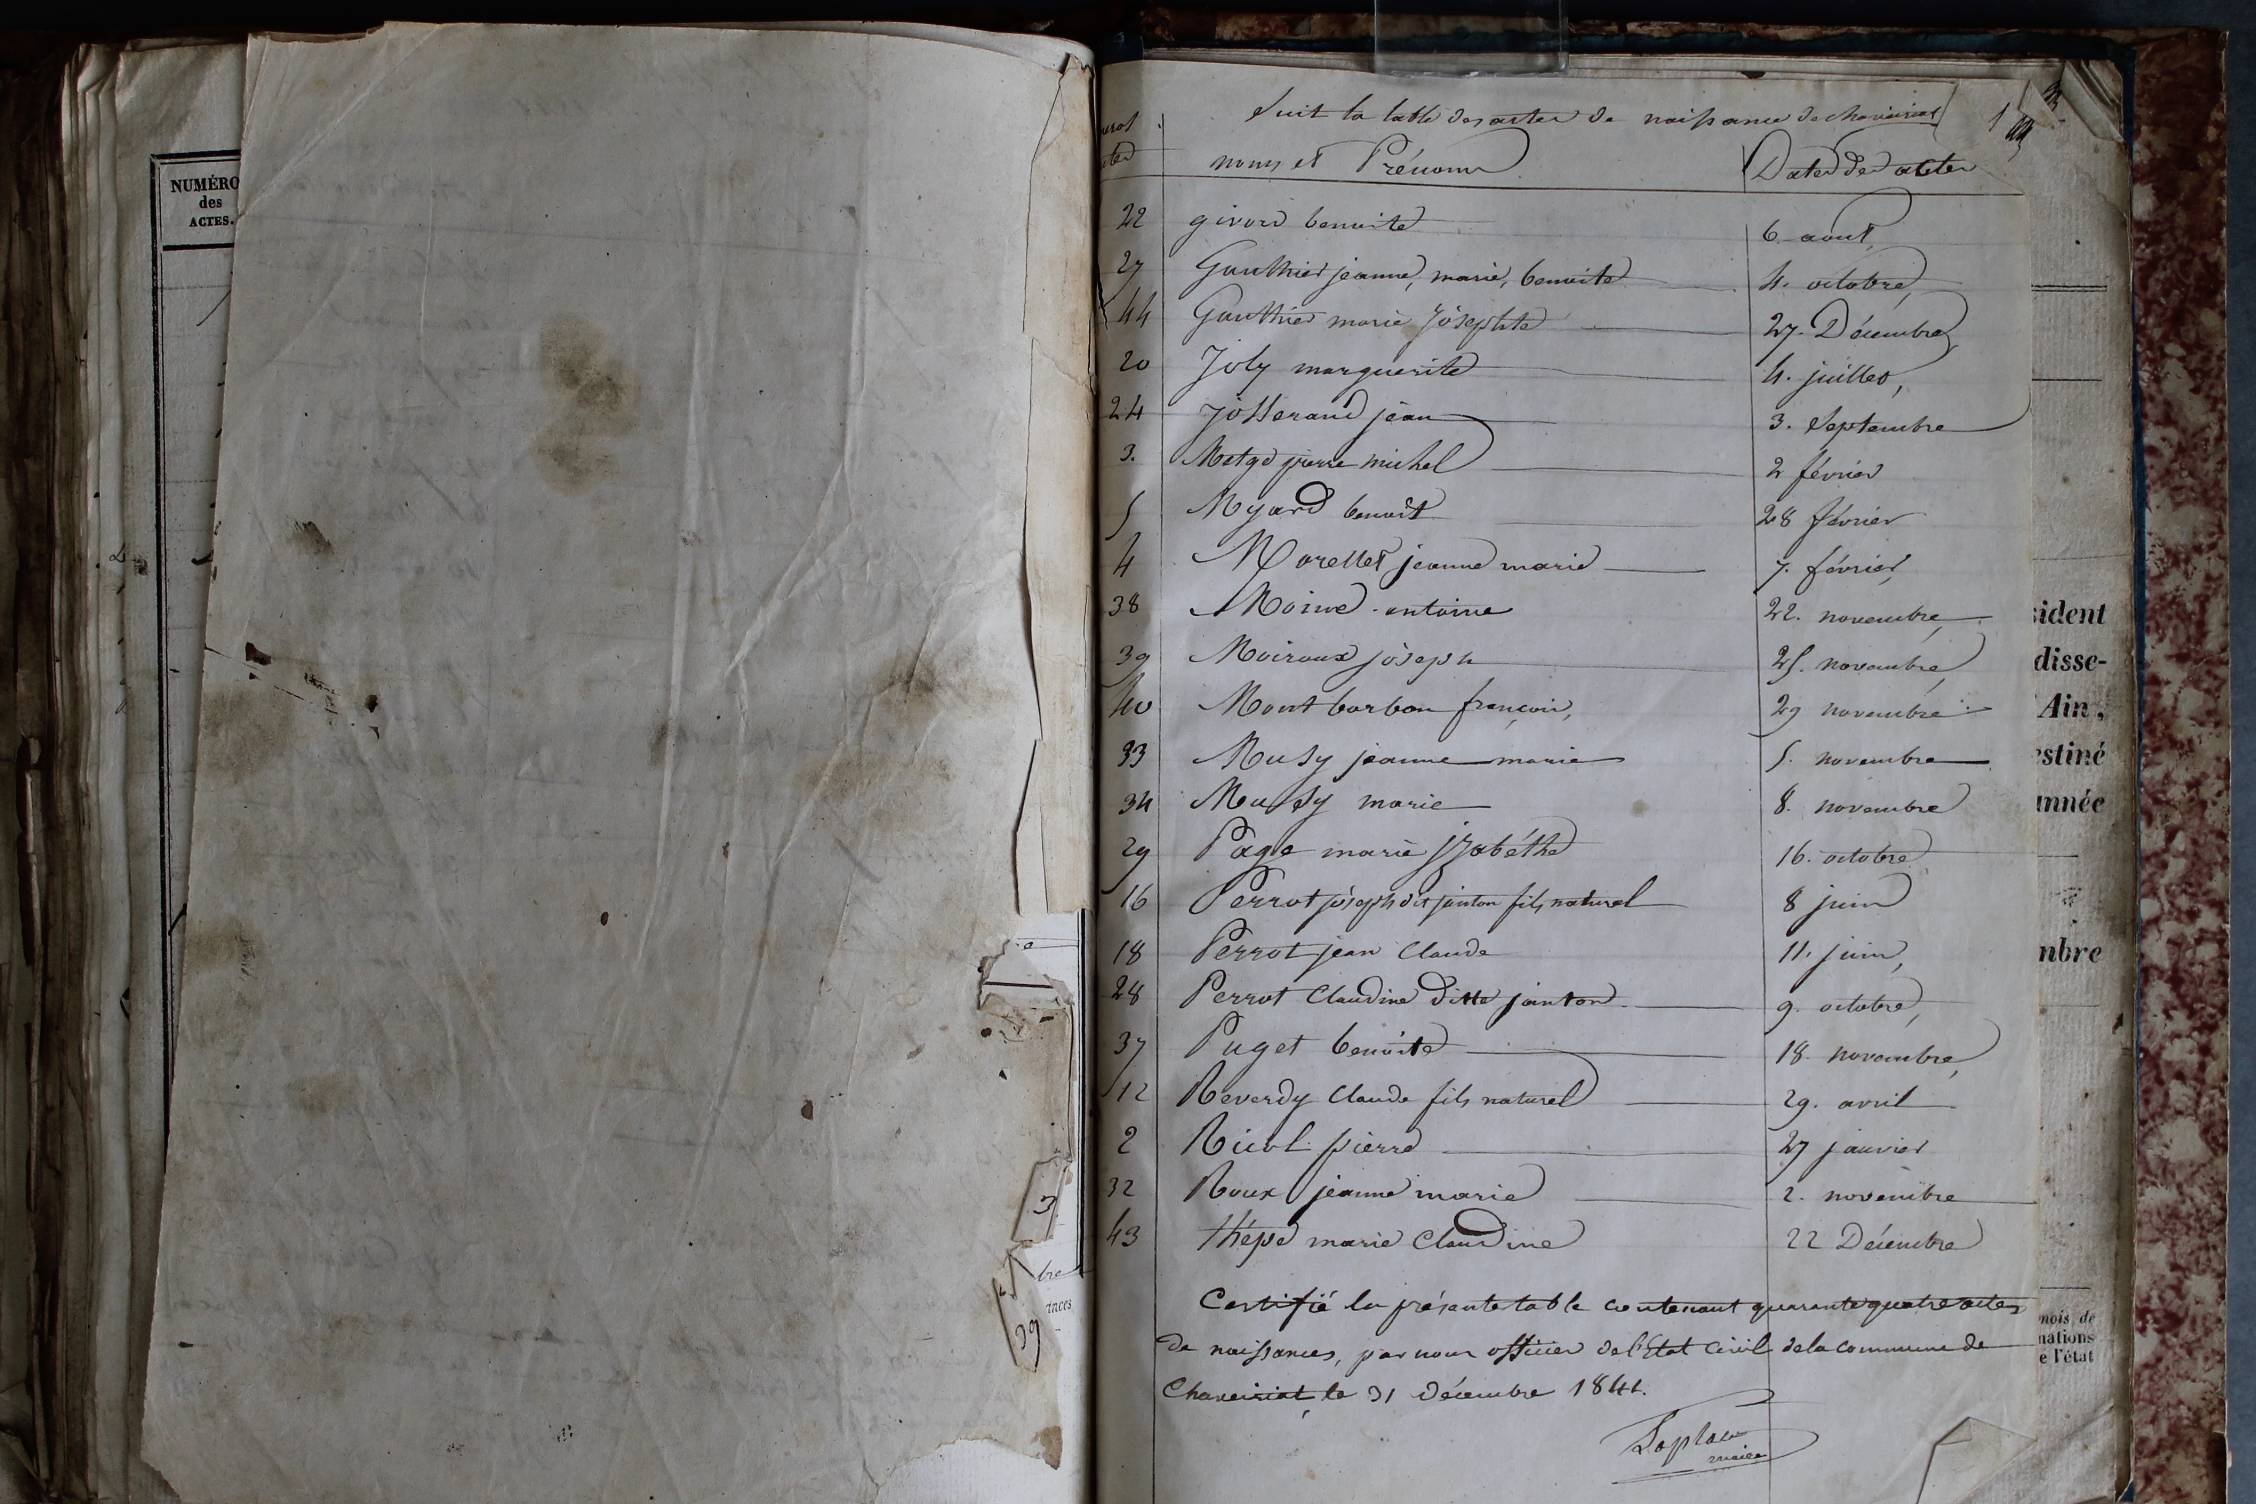 NUMÉRO
des
ACTES.
Suit la table des actes de naissance de chaveiriat
noms et Prénoms Dates des actes
22 girard benoite 6. aout,
27 Gauthier jeanne, marie, benoite 4. octobre,
44 Gauthier marie josephte 27. Décembre,
20 Joly marguerite 4. juillet,
24 josserand jean 3. septembre
3. Metge pierre michel 2 février
5 Myard benoît 28 février
4 Morellet jeanne marie 7. février,
38 Moine antoine 22. novembre,
39 Moiroux joseph 25. novembre,
40 Montbarbon françois, 29 novembre
33 Musy jeanne marie 5. novembre
34 Musy marie 8. novembre
29 Page marie jzabéthe 16. octobre
16 Perrot joseph dit janton fils naturel 8 juin
18 Perrot jean Claude 11. juin,
28 Perrot Claudine ditte janton 9. octobre,
37 Puget benoite 18. novembre,
12 Reverdy Claude fils naturel 29. avril
2 Ricol pierre 27 janvier
32 Roux jeanne marie 2. novembre
43 thépe marie Claudine 22 Décembre
Certifié la présente table contenant quarante quatre actes
de naissances, par nous officier de l'Etat Civil de la commune de
Chaveiriat, le 31 décembre 1841.
Laplace
maire
3
39
bre
ances
sident
disse-
Ain,
estiné
année
mbre
mois de
nations
e l'état